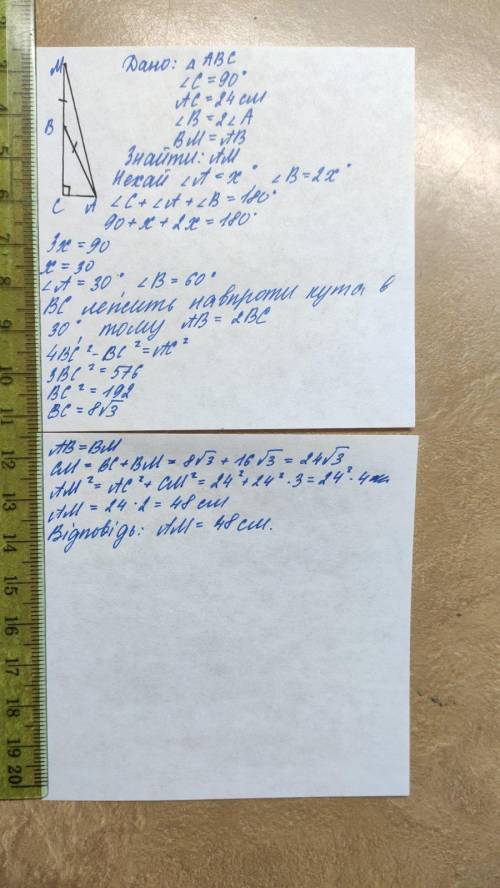 M
B
C
A
Дано: △ ABC
∠C = 90°
AC = 24 см
∠B = 2∠A
BM = AB
Знайти: AM
Нехай ∠A = x° ∠B = 2x°
∠C + ∠A + ∠B = 180°
90 + x + 2x = 180°
3x = 90
x = 30
∠A = 30°, ∠B = 60°
BC лежить навпроти кута в
30°, тому AB = 2BC
4BC² - BC² = AC²
3BC² = 576
BC² = 192
BC = 8√3
AB = BM
CM = BC + BM = 8√3 + 16√3 = 24√3
AM² = AC² + CM² = 24² + 24² · 3 = 24² · 4
AM = 24 · 2 = 48 см
Відповідь: AM = 48 см.
2
3
4
5
6
7
8
9
10
11
12
13
14
15
16
17
18
19
20